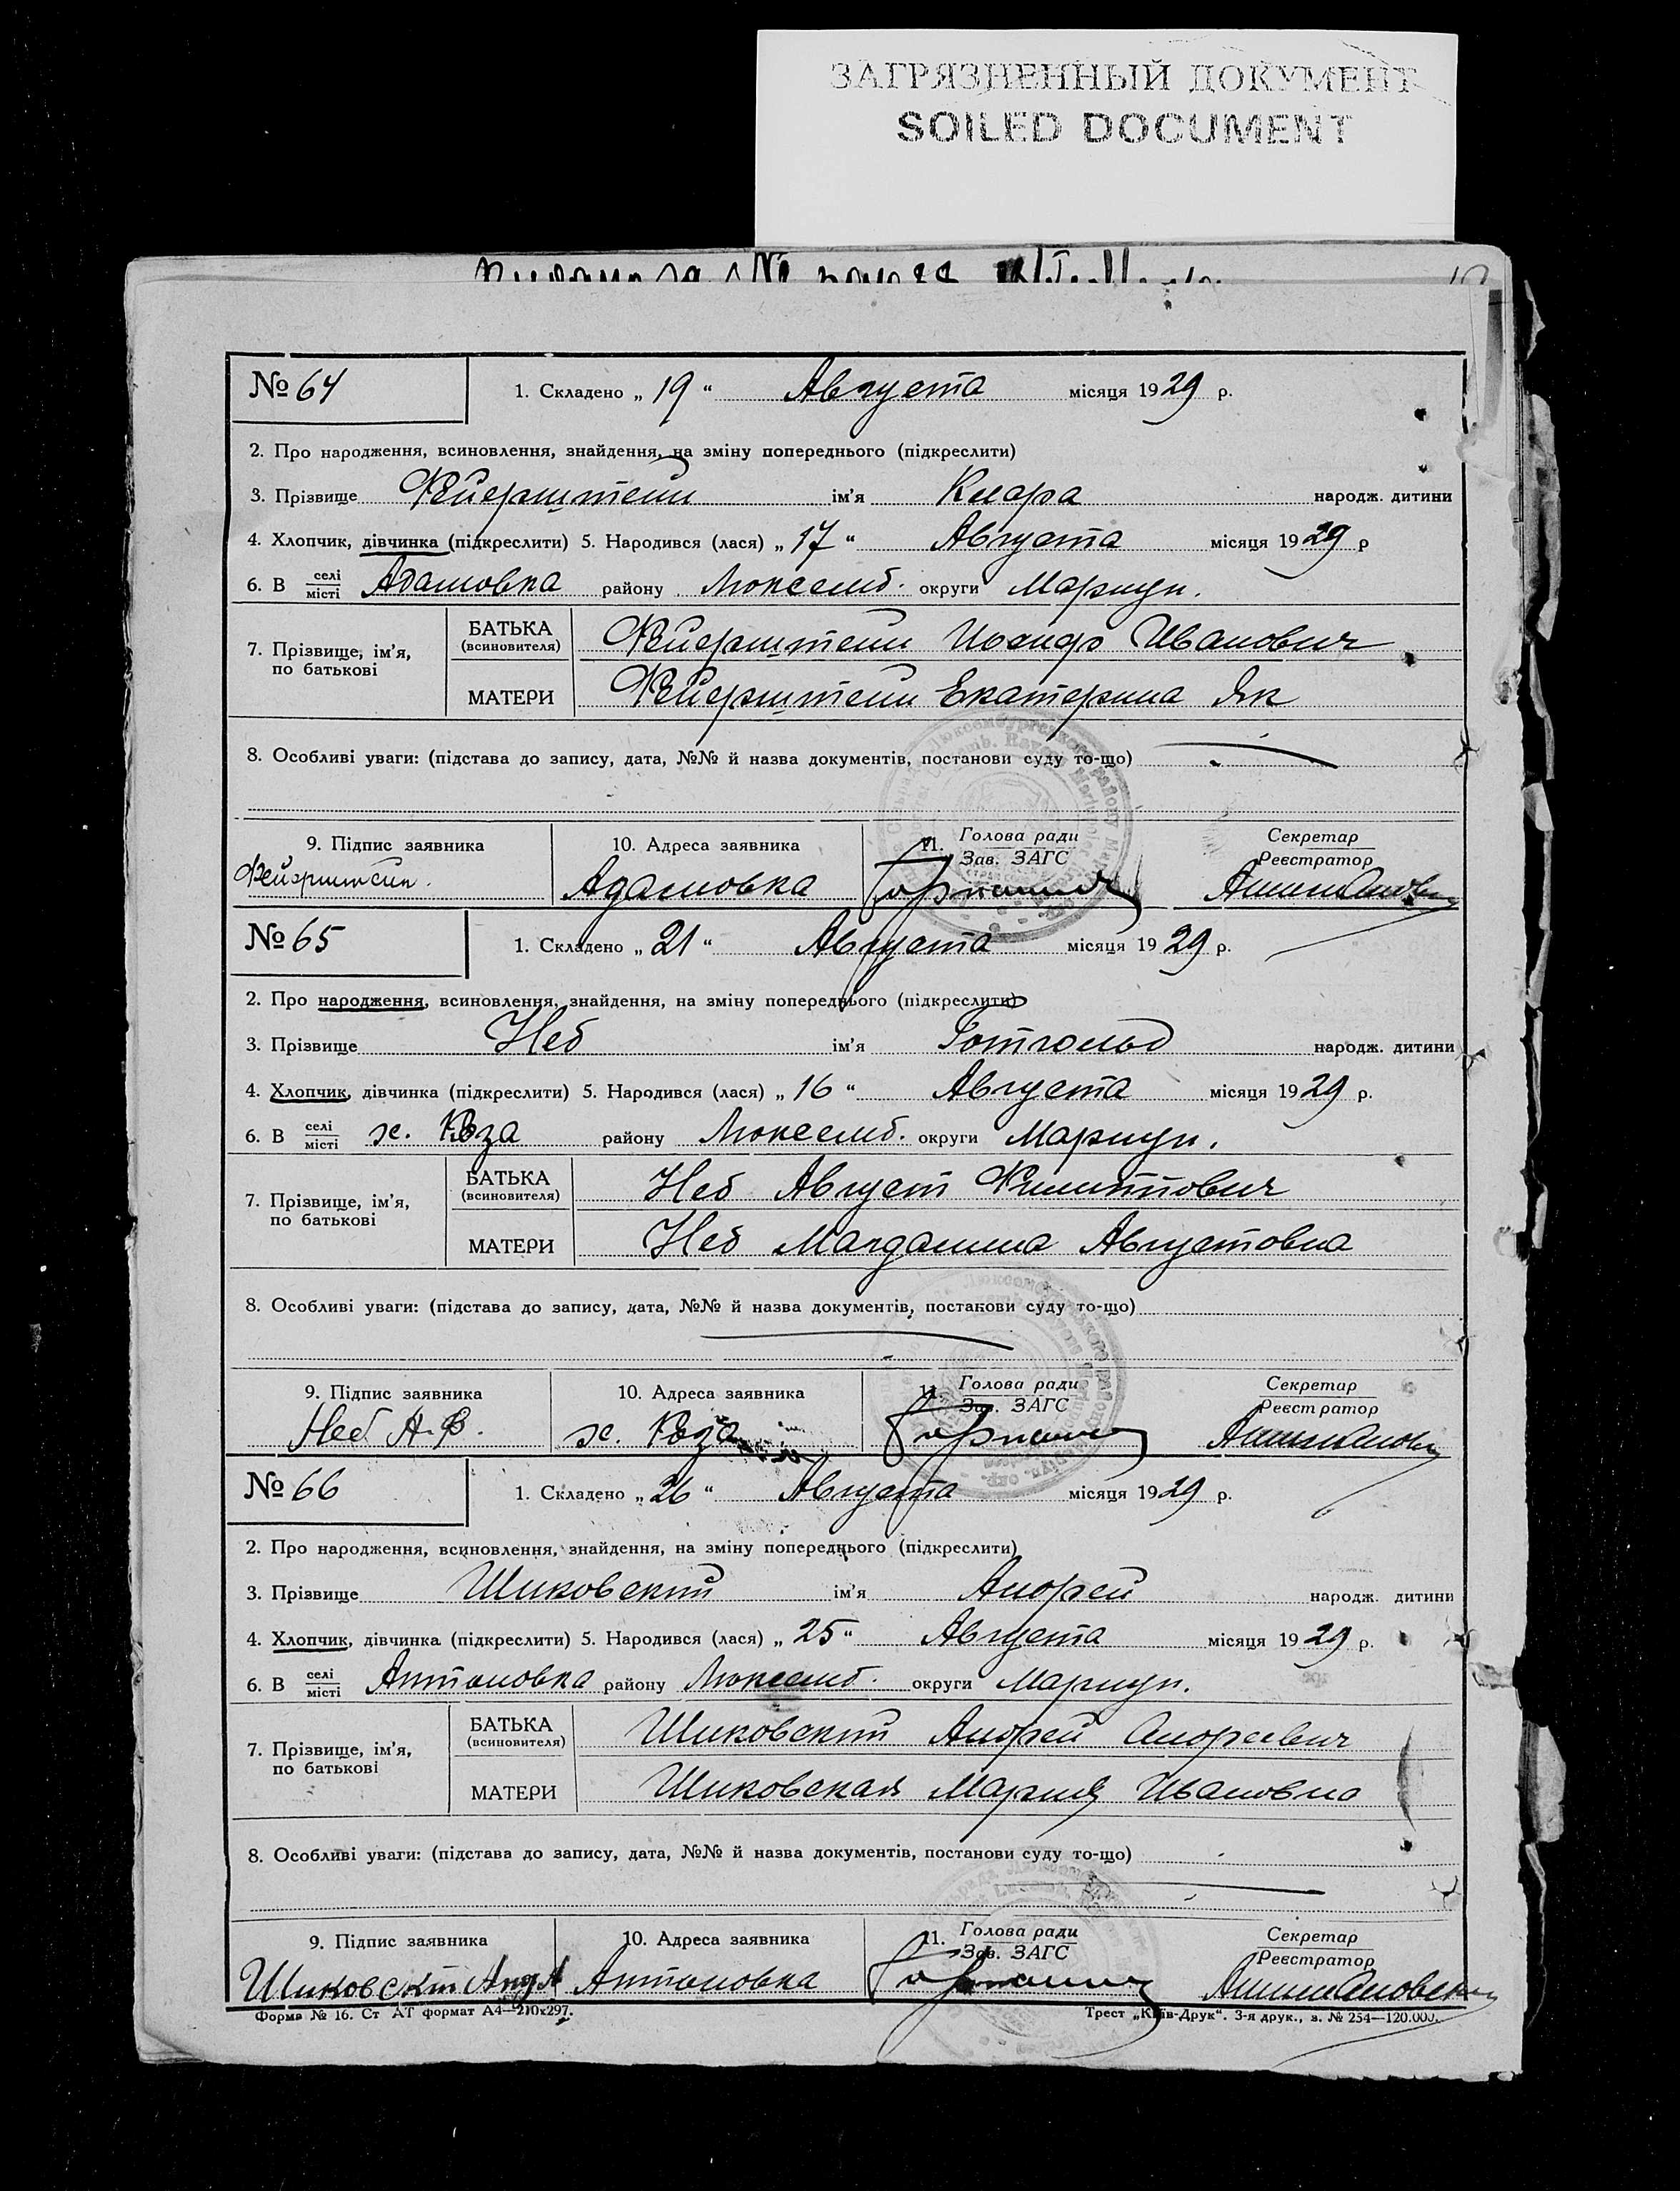 ЗАГРЯЗНЕННЫЙ ДОКУМЕНТ
SOILED DOCUMENT
№ 64
1. Складено „ 19 “ Августа місяця 1929 р.
2. Про народження, всиновлення, знайдення, на зміну попереднього (підкреслити)
3. Прізвище Фейерштейн ім'я Клара народж. дитини
4. Хлопчик, дівчинка (підкреслити) 5. Народився (лася) „ 17 “ Августа місяця 1929 р
6. В селі місті Адамовка району Люксемб. округи Мариуп.
7. Прізвище, ім'я, по батькові
БАТЬКА (всиновителя) Фейерштейн Иосиф Иванович
МАТЕРИ Фейерштейн Екатерина Як
8. Особливі уваги: (підстава до запису, дата, №№ й назва документів, постанови суду то-що)
9. Підпис заявника 10. Адреса заявника 11. Голова ради Зав. ЗАГС Секретар Реєстратор
Фейерштейн. Адамовка
№ 65
1. Складено „ 21 “ Августа місяця 1929 р.
2. Про народження, всиновлення, знайдення, на зміну попереднього (підкреслити)
3. Прізвище Неб ім'я Готгольд народж. дитини
4. Хлопчик, дівчинка (підкреслити) 5. Народився (лася) „ 16 “ Августа місяця 1929 р.
6. В селі місті х. району Люксемб. округи Мариуп.
7. Прізвище, ім'я, по батькові
БАТЬКА (всиновителя) Неб Август Филиппович
МАТЕРИ Неб Магдалина Августовна
8. Особливі уваги: (підстава до запису, дата, №№ й назва документів, постанови суду то-що)
9. Підпис заявника 10. Адреса заявника 11. Голова ради Зав. ЗАГС Секретар Реєстратор
Неб А. Ф. х.
№ 66
1. Складено „ 26 “ Августа місяця 1929 р.
2. Про народження, всиновлення, знайдення, на зміну попереднього (підкреслити)
3. Прізвище Шиковский ім'я Андрей народж. дитини
4. Хлопчик, дівчинка (підкреслити) 5. Народився (лася) „ 25 “ Августа місяця 1929 р.
6. В селі місті Антоновка району Люксемб. округи Мариуп.
7. Прізвище, ім'я, по батькові
БАТЬКА (всиновителя) Шиковский Андрей Андреевич
МАТЕРИ Шиковская Мария Ивановна
8. Особливі уваги: (підстава до запису, дата, №№ й назва документів, постанови суду то-що)
9. Підпис заявника 10. Адреса заявника 11. Голова ради Зав. ЗАГС Секретар Реєстратор
Шиковский Анд А Антоновка
Форма № 16. Ст АТ формат А4—210х297. Трест „Київ-Друк“. 3-я друк., з. № 254—120.000.